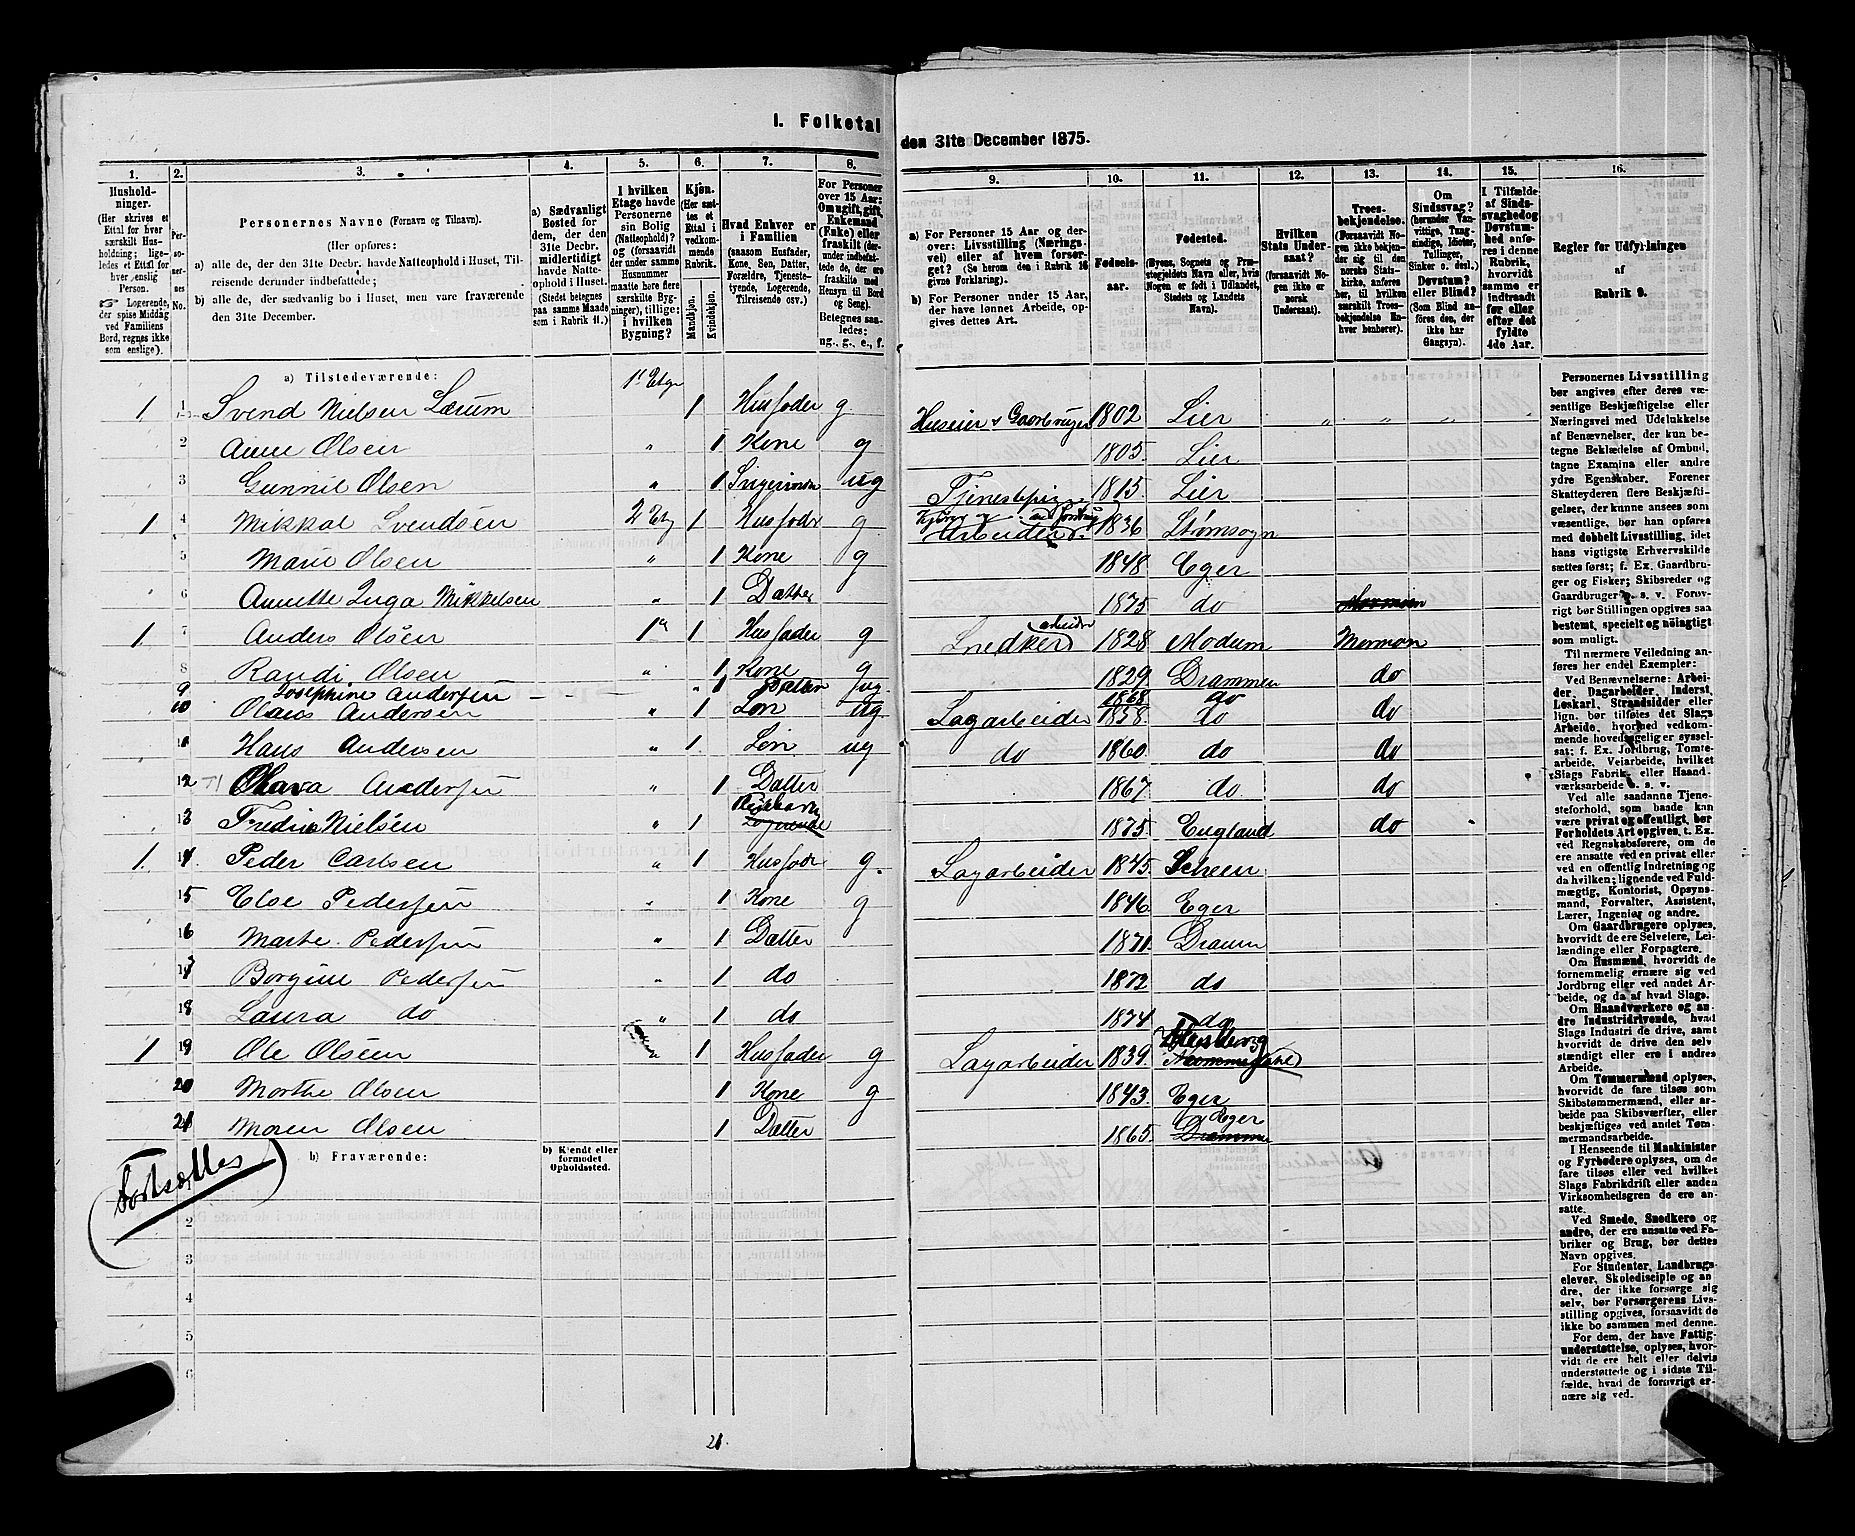 I. Folketal
den 31te December 1875.
1. 2. 3. 4. 5. 6. 7. 8. 9. 10. 11. 12. 13. 14. 15. 16.
Husholdninger. (Her skrives et Ettal for hver særskilt Husholdning; ligeledes et Ettal for hver enslig Person. ☞ Logerende, der spise Middag ved Familiens Bord, regnes ikke som enslige).
Personernes No.
Personernes Navne (Fornavn og Tilnavn).
(Her opføres:
a) alle de, der den 31te Decbr. havde Natteophold i Huset, Tilreisende derunder indbefattede;
b) alle de, der sædvanlig bo i Huset, men vare fraværende den 31te December.
a) Sædvanligt Bosted for dem, der den 31te Decbr. midlertidigt havde Natteophold i Huset. (Stedet betegnes paa samme Maade som i Rubrik 11.)
I hvilken Etage havde Personerne sin Bolig (Natteophold)? og (forsaavidt der under samme Husnummer maatte høre flere særskilte Bygninger), tillige: i hvilken Bygning?
Kjøn. (Her sættes et Ettal i vedkommende Rubrik. Mandkjøn. Kvindekjøn.
Hvad Enhver er i Familien (saasom Husfader, Kone, Søn, Datter, Forældre, Tjenestetyende, Logerende, Tilreisende osv.)
For Personer over 15 Aar: Om ugift, gift, Enkemand (Enke) eller fraskilt (derunder indbefattede de, der ere fraskilte med Hensyn til Bord og Seng) Betegnes saaledes: ug., g., e., f.
a) For Personer 15 Aar og derover: Livsstilling (Næringsvei) eller af hvem forsørget? (Se herom den i Rubrik 16 givne Forklaring).
b) For Personer under 15 Aar, der have lønnet Arbeide, opgives dettes Art.
Fødselsaar.
Fødested. (Byens, Sognets og Præstegjeldets Navn eller, hvis Nogen er født i Udlandet, Stedets og Landets Navn).
Hvilken Stats Undersaat? (forsaavidt Nogen ikke er norsk Undersaat).
Troesbekjendelse. (Forsaavidt Nogen ikke bekjender sig til den norske Statskirke, anføres her, til hvilken særskilt Troesbekjendelse Enhver henhører).
Om Sindssvag? (herunder Vanvittige, Tungsindige, Idioter, Tullinger, Sinker o. desl.) Døvstum? eller Blind? (Som Blind anføres den, der ikke har Gangsyn).
I Tilfælde af Sindssvaghed og Døvstumhed anføres i denne Rubrik, hvorvidt samme er indtraadt før eller efter det fyldte 4de Aar.
Regler for Udfyldningen af Rubrik 9.
a) Tilstedeværende:
1 1 Svend Nielsen Lærum 1ste Etge 1 Husfader g Huseier & Gaardbruger 1802 Lier
2 Anne Olsen " 1 Kone g 1805 Lier
3 Gunnil Olsen " 1 ug 1815 Lier
1 4 Mikkal Svendsen 2 Etg 1 Husfadr g Arbeider 1836 Strømsogn
5 Marie Olsen " 1 Kone g 1848 Eger
6 Annette Inga Mikkelsen " 1 Datter 1875 do Mormon
1 7 Anders Olsen 1 1 Husfader g Snedkerarbeider 1828 Modum Mormon
8 Randi Olsen " 1 Kone g 1829 Drammen do
9 Josephine Andersen " 1 Datter ug. 1868 do
10 Olaus Andersen " 1 Søn ug Sagarbeider 1858 do do
11 Hans Andersen " 1 Søn ug do 1860. do do
12 Olava Andersen " 1 Datter 1867. do. do
13 Fredrik Nielsen " 1 Pleiebarn Logerende 1875. England do
1 14 Peder Carlsen " 1 Husfadr g. Sagarbeider 1845. Scheen
15 Else Pedersen " 1 Kone g 1846. Eger
16 Marte Pedersen " 1 Datter 1871. Dramn
17 Borgine Pedersen " 1 do 1872 do
18 Laura do " 1 do 1874. do
1 19 Ole Olsen 1 Husfader g Sagarbeider 1839.
20 Morthe Olsen 1 Kone g 1843 Eger
21 Maren Olsen 1 Datter 1865. Eger Drammen
b) Fraværende:
b) Kjendt eller formodet Opholdssted.
(Fortsættes)
1
2
3
4
5
6
21.
Personernes Livsstilling bør angives efter deres væsentlige Beskjæftigelse eller Næringsvei med Udelukkelse af Benævnelser, der kun betegne Beklædelse af Ombud, tagne Examina eller andre ydre Egenskaber. Forener Skatteyderen flere Beskjæftigelser, der kunne ansees som væsentlige, bør han opføres med dobbelt Livsstilling, idet hans vigtigste Erhvervskilde sættes først; f. Ex. Gaardbruger og Fisker; Skibsreder og Gaardbruger o. s. v. Forøvrigt bør Stillingen opgives saa bestemt, specielt og nøiagtigt som muligt.
Til nærmere Veiledning anføres her endel Exempler:
Ved Benævnelserne: Arbeider, Dagarbeider, Inderst, Løskarl, Strandsidder eller lign. bør tilføies det Slags Arbeide, hvormed vedkommende hovedsagelig er sysselsat; f. Ex. Jordbrug, Tomtearbeide, Veiarbeide, hvilket Slags Fabrik- eller Haandværksarbeide o. s. v.
Ved alle saadanne Tjenesteforhold, som baade kan være privat og offentligt, bør Forholdets Art opgives, t. Ex. ved Regnskabsførere, om de ere ansatte ved en privat eller ved en offentlig Indretning og da hvilken; lignende ved Fuldmægtig, Kontorist, Opsynsmand, Forvalter, Assistent, Lærer, Ingeniør og andre.
Om Gaardbrugere oplyses, hvorvidt de ere Selveiere, Leilændinge eller Forpagtere.
Om Husmænd, hvorvidt de fornemmelig ernære sig ved Jordbrug eller ved andet Arbeide, og da af hvad Slags.
Om Haandværkere og andre Industridrivende, hvad Slags Industri de drive, samt hvorvidt de drive den selvstændigt eller ere i andres Arbeide.
Om Tømmermænd oplyses, hvorvidt de fare tilsøs som Skibstømmermænd, eller arbeide paa Skibsværfter, eller beskjæftiges ved andet Tømmermandsarbeide.
I Henseende til Maskinister og Fyrbødere oplyses, om de fare tilsøs eller ved hvilket Slags Fabrikdrift eller anden Virksomhedsgren de ere ansatte.
Ved Smede, Snedkere og andre, der ere ansatte ved Fabriker og Brug, bør dettes Navn opgives.
For Studenter, Landbrugselever, Skoledisciple og andre, der ikke forsørge sig selv, bør Forsørgerens Livsstilling opgives, forsaavidt de ikke bo sammen med denne.
For dem, der have Fattigunderstøttelse, oplyses, hvorvidt de ere helt eller delvis understøttede og i sidste Tilfælde, hvad de forøvrigt ernære sig ved.